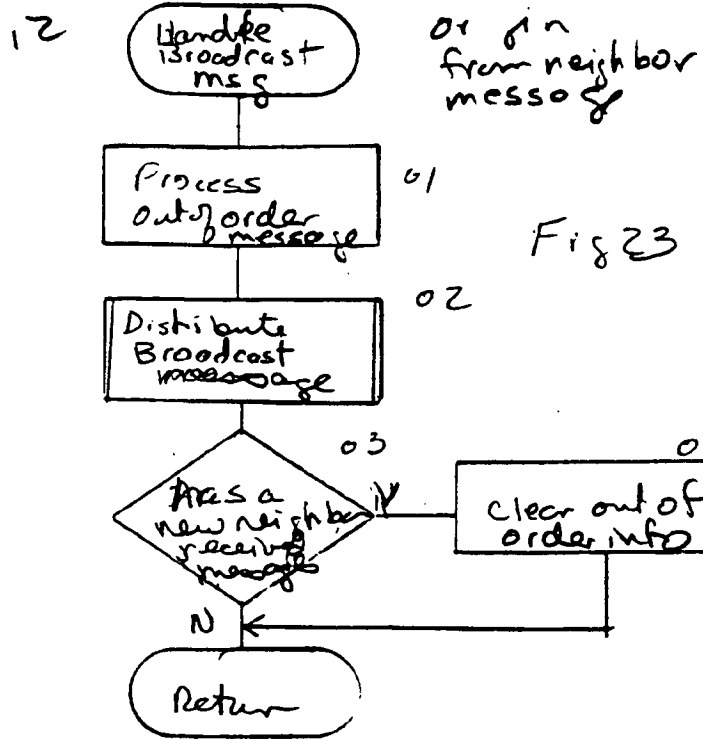 12
Handle
Broadcast
msg
origin
from neighbor
message
Process
out of order
message
01
Fig 23
02
Distribute
Broadcast
message
03
Has a
new neighbor
received
message
Y
0
clear out of
order info
N
Return